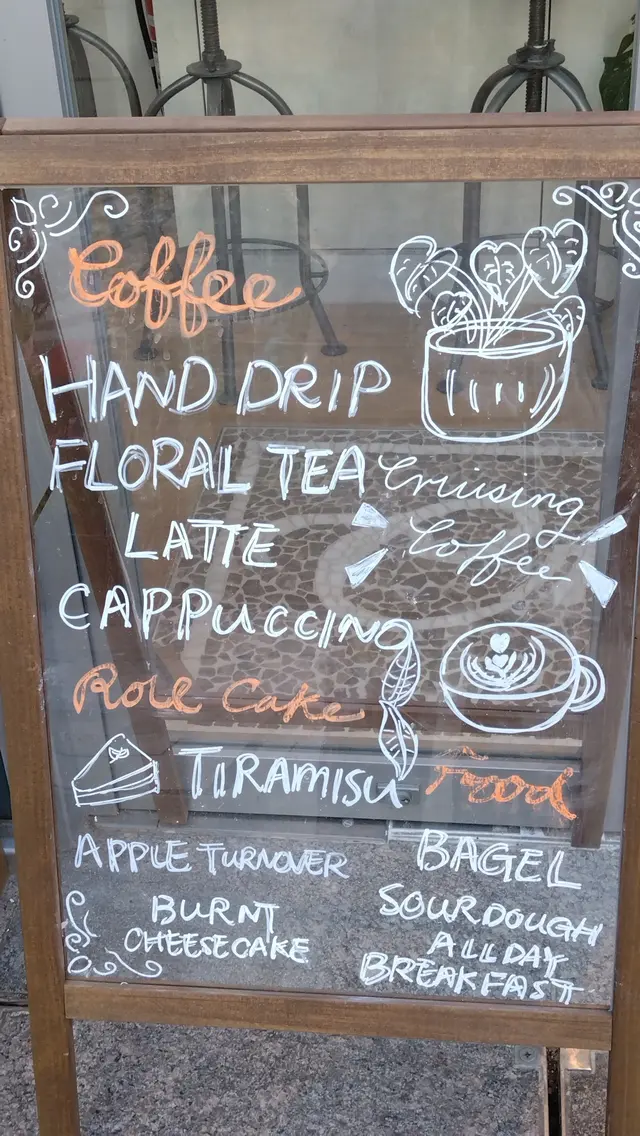 Coffee
HAND DRIP
FLORAL TEA
LATTE
CAPPUCCINO
Cruising
Coffee
Roll Cake
TIRAMISU
APPLE TURNOVER
BURNT
CHEESECAKE
Food
BAGEL
SOURDOUGH
ALL DAY
BREAKFAST